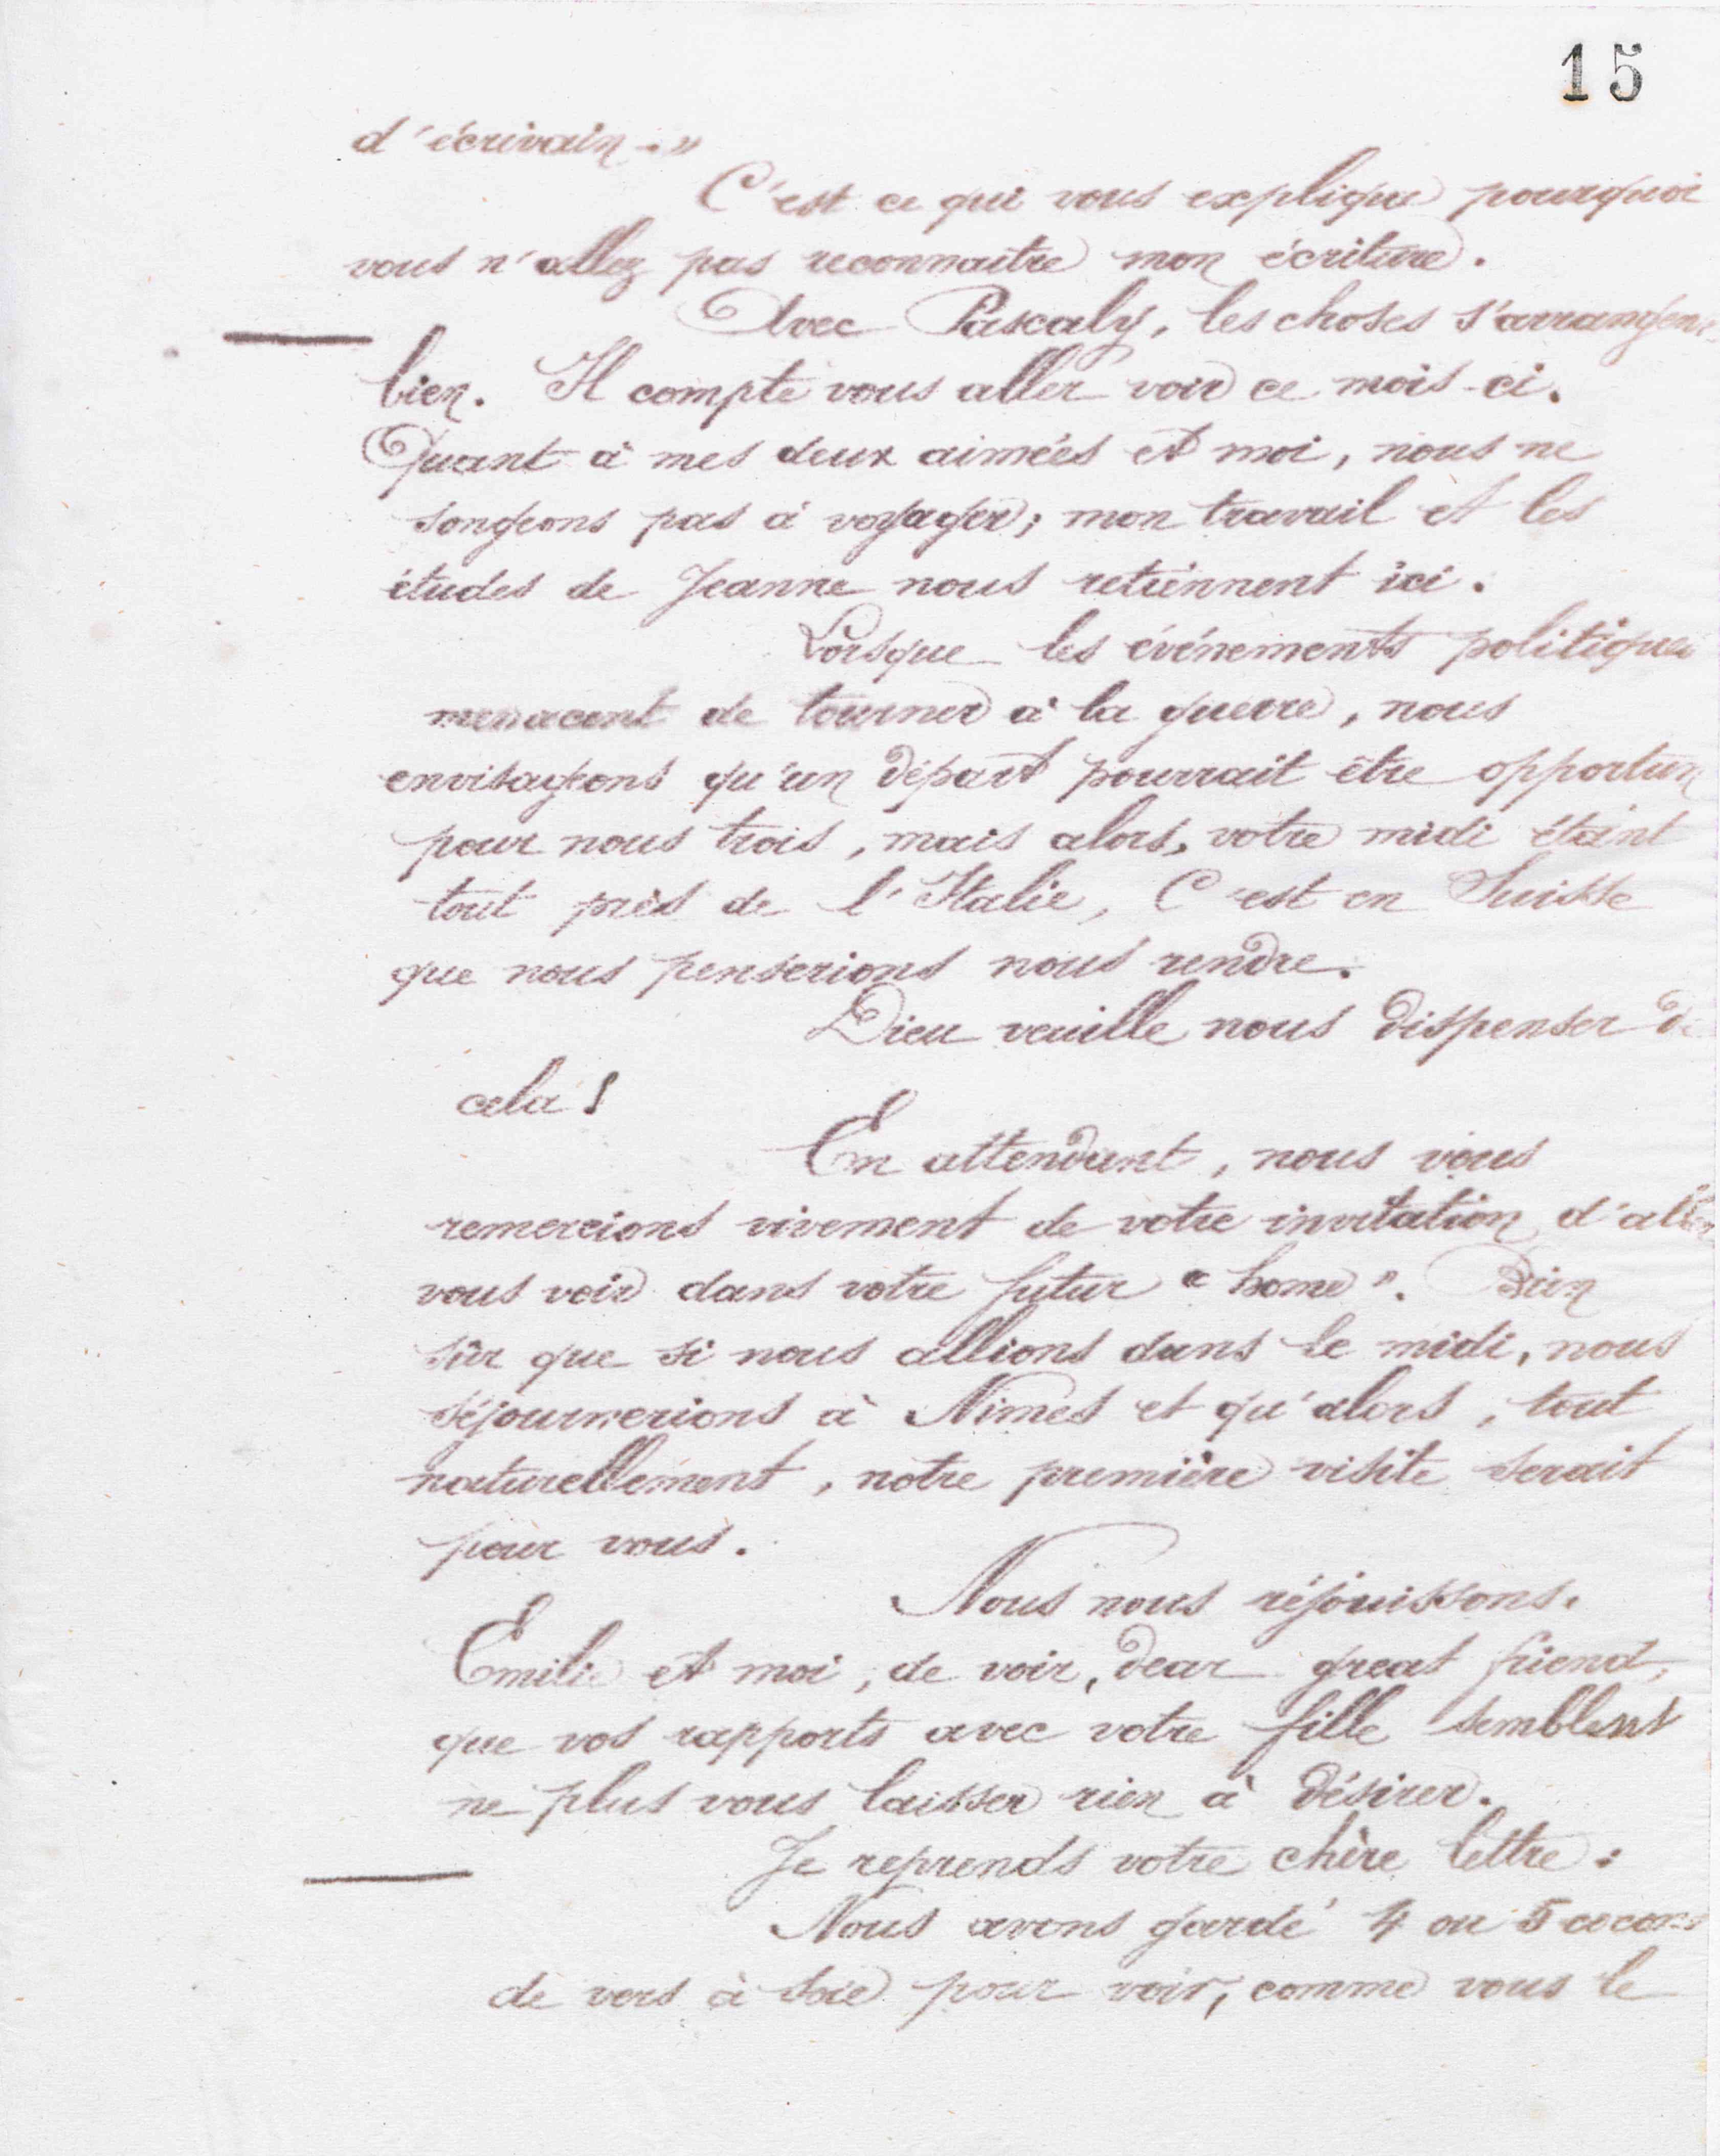 15
d'écrivain -."
C'est ce qui vous explique pourquoi
vous n'allez pas reconnaitre mon écriture.
Avec Pascaly, les choses s'arrangen
bien. Il compte vous aller voir ce mois-ci.
Quant à mes deux aimées et moi, nous ne
songeons pas à voyager; mon travail et les
études de Jeanne nous retiennent ici.
Lorsque les événements politiques
menacent de tourner à la guerre, nous
envisageons qu'un départ pourrait être opportun
pour nous trois, mais alors, votre midi étant
tout près de l'Italie, C'est en Suisse
que nous penserions nous rendre.
Dieu veuille nous dispenser de
cela!
En attendant, nous vous
remercions vivement de votre invitation d'aller
vous voir dans votre futur "home". Bien
sûr que si nous allions dans le midi, nous
séjournerions à Nimes et qu'alors, tout
naturellement, notre première visite serait
pour vous.
Nous nous réjouissons,
Emilie et moi, de voir, dear great friend,
que vos rapports avec votre fille semblent
ne plus vous laisser rien à désirer.
Je reprends votre chère lettre:
Nous avons gardé 4 ou 5 cocons
de vers à soie pour voir, comme vous le